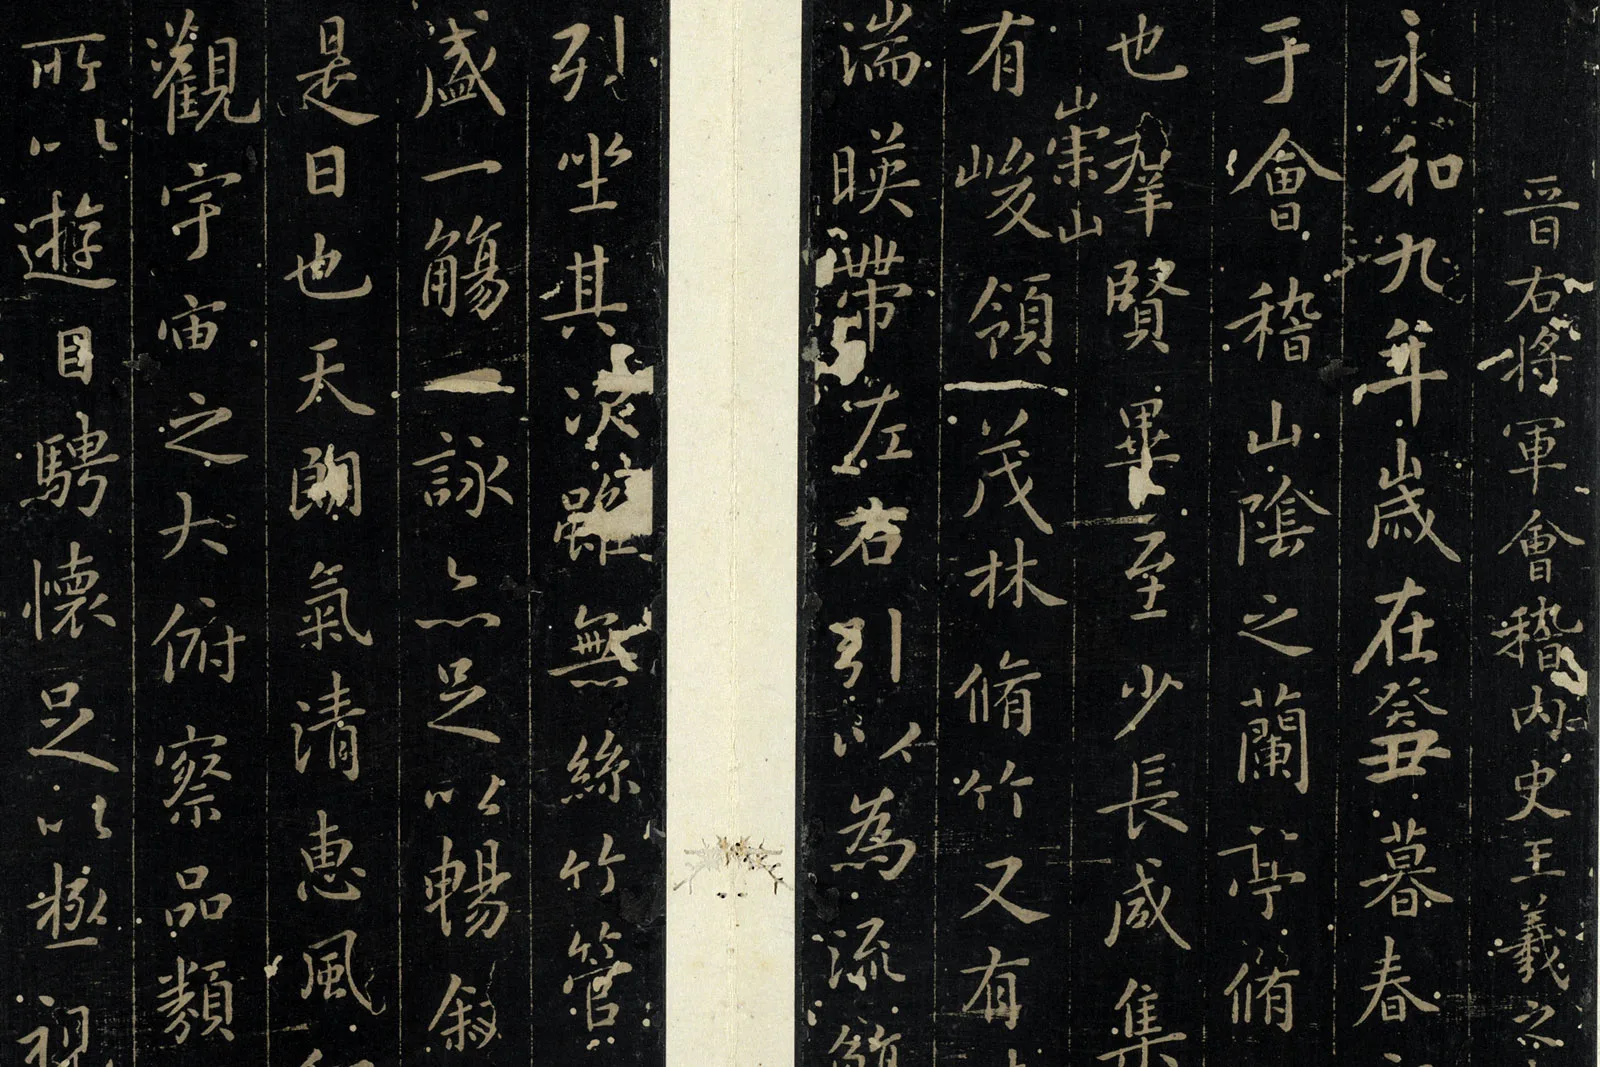 晋右将軍會稽内史王羲之
永和九年歲在癸丑暮春
于會稽山陰之蘭亭脩
也羣賢畢至少長咸集
崇山
有峻領茂林脩竹又有
湍暎帶左右引以為流觴
列坐其次雖無絲竹管
盛一觴一詠亦足以暢敘
是日也天朗氣清惠風
觀宇宙之大俯察品類
所以遊目騁懷足以極視